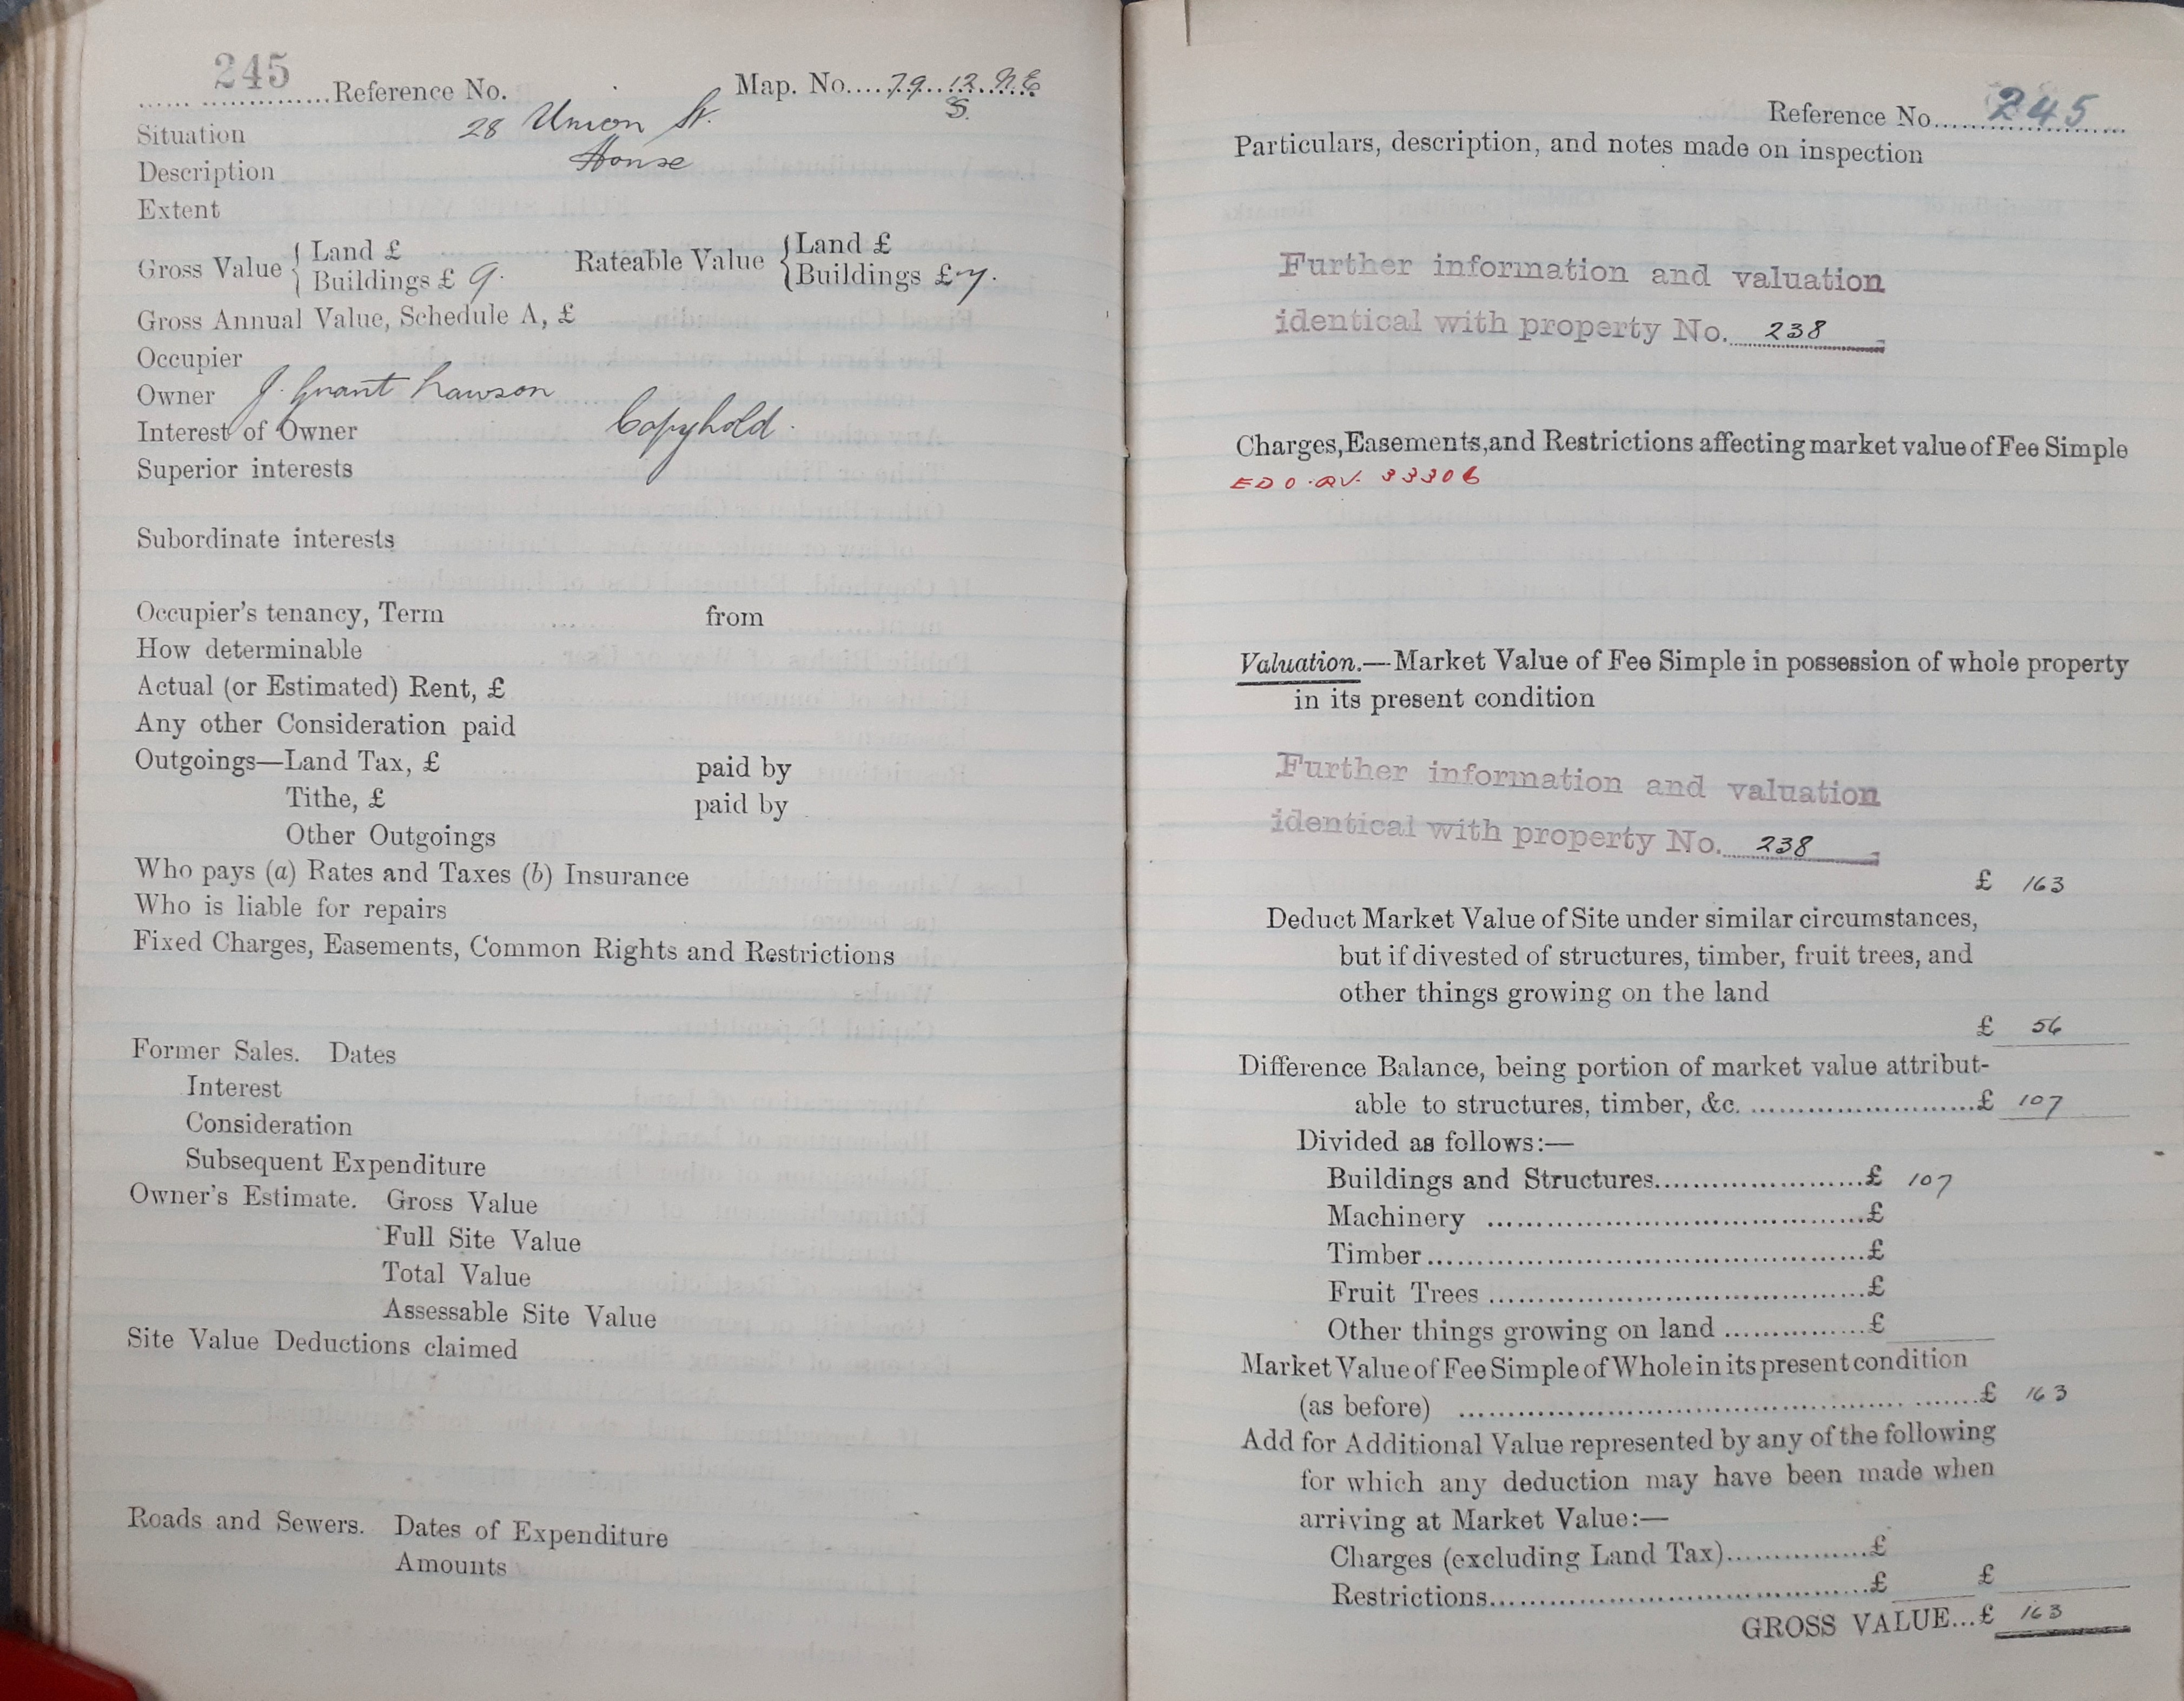 245
Reference No. Map. No. 79. 12. N.E
S.
Situation 28 Union St.
Description House
Extent
Gross Value { Land £
Buildings £ 9.
Rateable Value { Land £
Buildings £ 7.
Gross Annual Value, Schedule A, £
Occupier
Owner J. Grant Lawson
Interest of Owner Copyhold.
Superior interests
Subordinate interests
Occupier's tenancy, Term from
How determinable
Actual (or Estimated) Rent, £
Any other Consideration paid
Outgoings—Land Tax, £ paid by
Tithe, £ paid by
Other Outgoings
Who pays (a) Rates and Taxes (b) Insurance
Who is liable for repairs
Fixed Charges, Easements, Common Rights and Restrictions
Former Sales. Dates
Interest
Consideration
Subsequent Expenditure
Owner's Estimate. Gross Value
Full Site Value
Total Value
Assessable Site Value
Site Value Deductions claimed
Roads and Sewers. Dates of Expenditure
Amounts
Reference No. 245
Particulars, description, and notes made on inspection
Further information and valuation
identical with property No. 238
Charges, Easements, and Restrictions affecting market value of Fee Simple
EDO.RV. 33306
Valuation.—Market Value of Fee Simple in possession of whole property
in its present condition
Further information and valuation
identical with property No. 238
£ 163
Deduct Market Value of Site under similar circumstances,
but if divested of structures, timber, fruit trees, and
other things growing on the land
£ 56
Difference Balance, being portion of market value attribut-
able to structures, timber, &c. £ 107
Divided as follows:—
Buildings and Structures £ 107
Machinery £
Timber £
Fruit Trees £
Other things growing on land £
Market Value of Fee Simple of Whole in its present condition
(as before) £ 163
Add for Additional Value represented by any of the following
for which any deduction may have been made when
arriving at Market Value:—
Charges (excluding Land Tax) £
Restrictions £ £
GROSS VALUE... £ 163